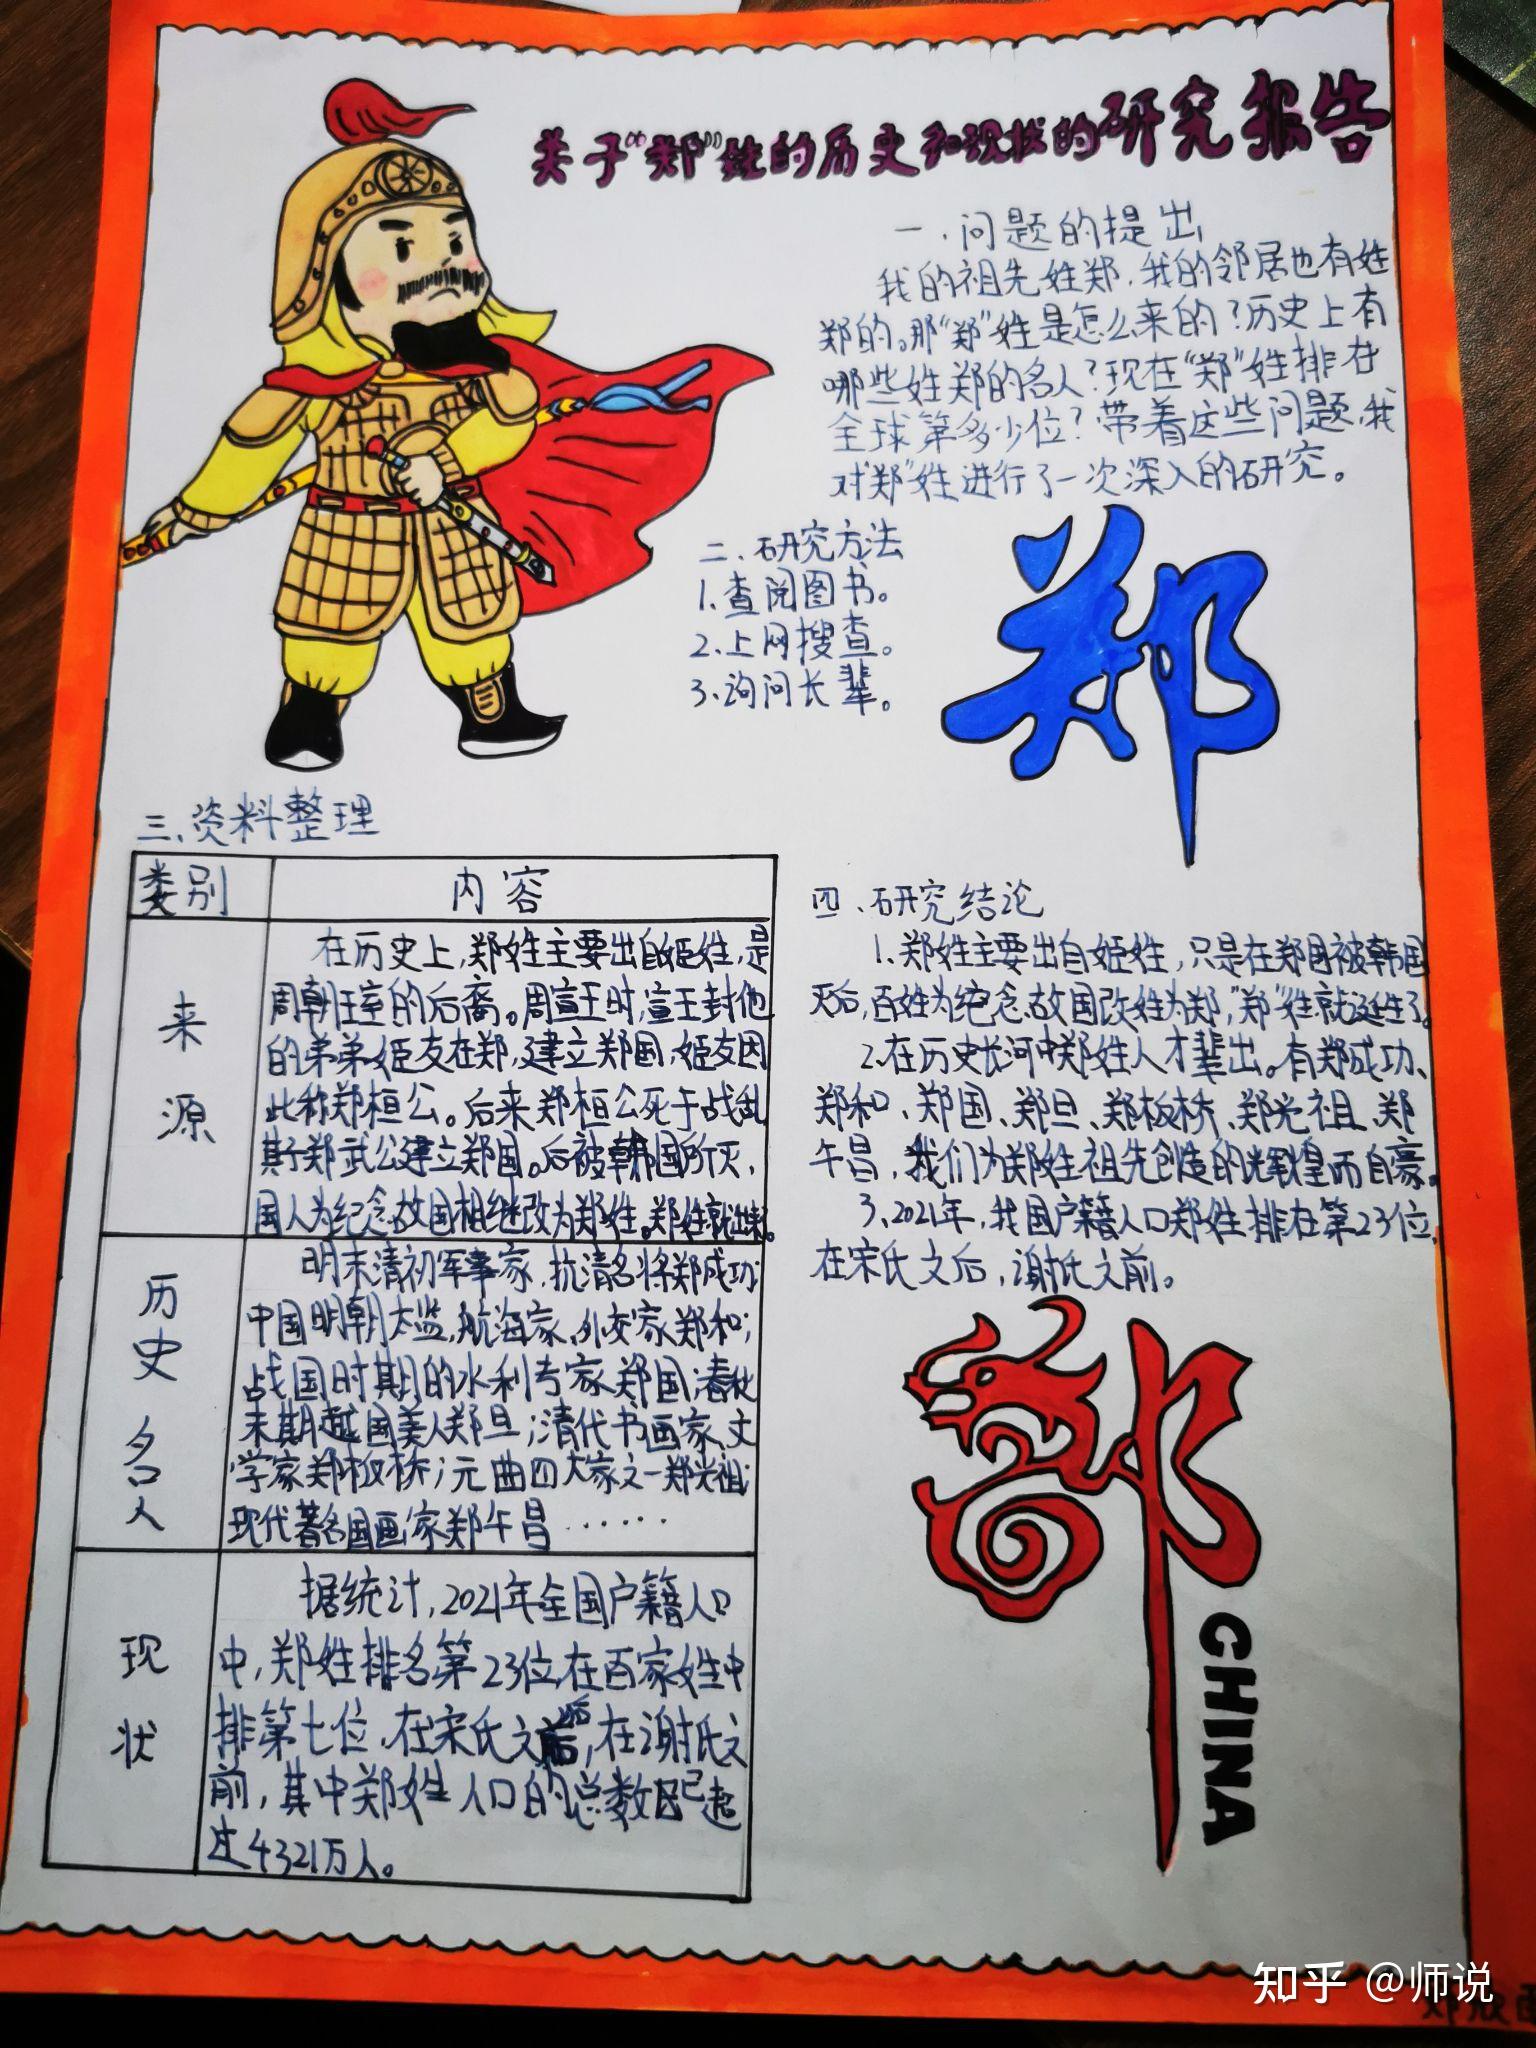 关于“郑”姓的历史和现状的研究报告
一、问题的提出
我的祖先姓郑,我的邻居也有姓
郑的。那“郑”姓是怎么来的?历史上有
哪些姓郑的名人?现在“郑”姓排在
全球第多少位?带着这些问题,我
对“郑”姓进行了一次深入的研究。
二、研究方法
1.查阅图书。
2.上网搜查。
3.询问长辈。
郑
三、资料整理
类别 内容
来源
在历史上,郑姓主要出自姬姓,是
周朝王室的后裔。周宣王时,宣王封他
的弟弟姬友在郑,建立郑国,姬友因
此称郑桓公。后来郑桓公死于战乱
其子郑武公建立郑国。后被韩国所灭,
国人为纪念故国相继改为郑姓。郑姓就出来。
历史名人
明末清初军事家,抗清名将郑成功;
中国明朝太监,航海家、外交家郑和;
战国时期的水利专家郑国;春秋
末期越国美人郑旦;清代书画家、文
学家郑板桥;元曲四大家之一郑光祖;
现代著名国画家郑午昌……
现状
据统计,2021年全国户籍人口
中,郑姓排名第23位,在百家姓中
排第七位,在宋氏之后,在谢氏之
前,其中郑姓人口的总数已超
过4321万人。
四、研究结论
1.郑姓主要出自姬姓,只是在郑国被韩国
灭后,百姓为纪念故国改姓为郑,“郑”姓就诞生了。
2.在历史长河中郑姓人才辈出。有郑成功、
郑和、郑国、郑旦、郑板桥、郑光祖、郑
午昌,我们为郑姓祖先创造的辉煌而自豪。
3、2021年,我国户籍人口郑姓排在第23位,
在宋氏之后,谢氏之前。
CHINA
知乎 @师说